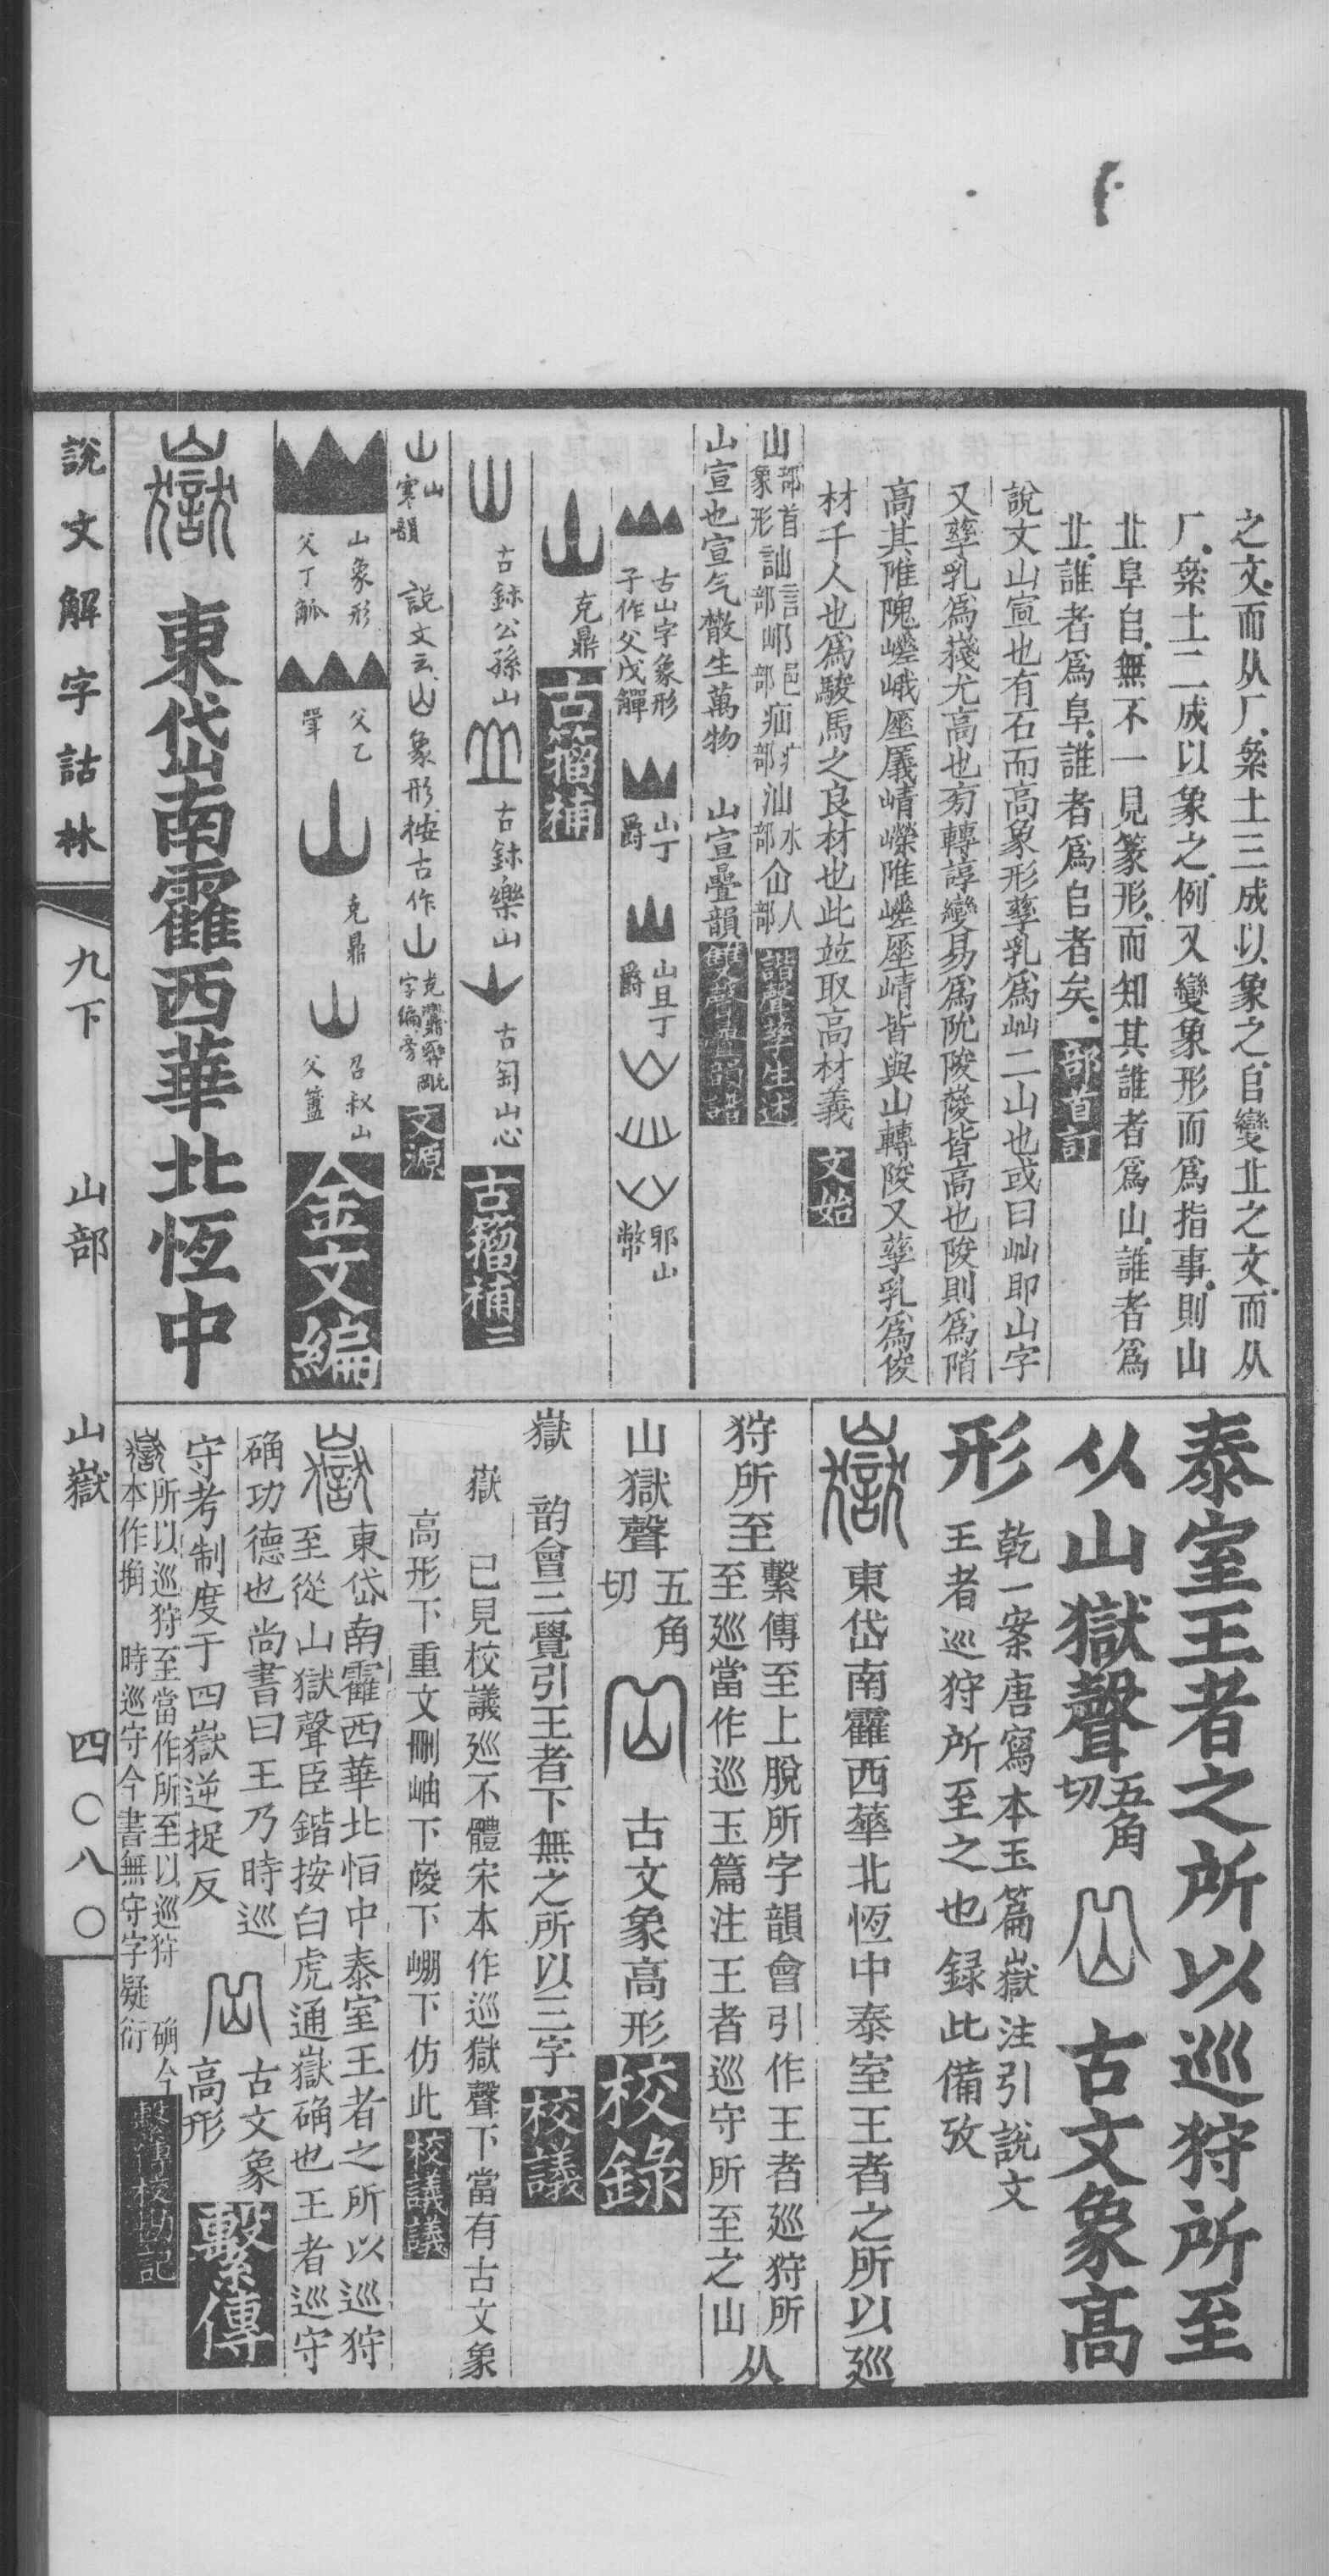 之文.而从厂.絫土三成以象之.𠂤變丠之文.而从
厂.絫土二成以象之.例又變象形而爲指事.則山
丠阜𠂤.無不一見篆形.而知其誰者爲山.誰者爲
丠.誰者爲阜.誰者爲𠂤者矣.部首訂
說文山宣也有石而高象形孳乳爲屾二山也或曰屾即山字
又孳乳爲㠜尤高也旁轉諄變易爲阭陖㟞皆高也陖則爲陗
高其陮隗嵯峨厜㕒崝嶸陮嵯厜崝皆與山轉陖又孳乳爲俊
材千人也爲駿馬之良材也此竝取高材義 文始
山部首象形訕言部邖邑部疝疒部汕水部仚人部 諧聲孳生述
山宣也宣气㪚生萬物 山宣疊韻 雙聲疊韻譜
古山字象形子作父戊觶 山丁爵 山且丁爵 邪山幣
克鼎 古籀補
古鉢公孫山 古鉢樂山 古匋山心 古籀補二
山山寒韻 說文云山象形按古作山 文源
山象形父丁觚 父乙 克鼎 召叔山父簠 金文編
嶽 東岱南靃西華北恆中
泰室王者之所以巡狩所至
从山獄聲五角切 古文象高
形 乾一案唐寫本玉篇嶽注引說文王者巡狩所至之也録此備攷
嶽 東岱南靃西華北恆中泰室王者之所以巡
狩所至 繫傳至上脫所字韻會引作王者巡狩所至巡當作巡玉篇注王者巡守所至之山 从
山獄聲五角切 古文象高形 校錄
嶽 韵會三覺引王者下無之所以三字 校議
嶽 已見校議巡不體宋本作巡獄聲下當有古文象
高形下重文刪岫下㟞下嵎下仿此 校議議
嶽 東岱南靃西華北恒中泰室王者之所以巡狩
至從山獄聲臣鍇按白虎通嶽确也王者巡守
确功德也尚書曰王乃時巡
守考制度于四嶽逆捉反 古文象高形 繫傳
嶽 所以巡狩至當作所至以巡狩 确今
本作捔 時巡守今書無守字疑衍 繫傳校勘記
說文解字詁林 九下 山部 山嶽 四〇八〇